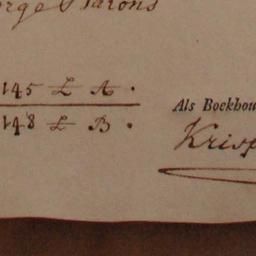 orge Parons
145 £ A.
148 £ B.
Als Boekhou
Krisp